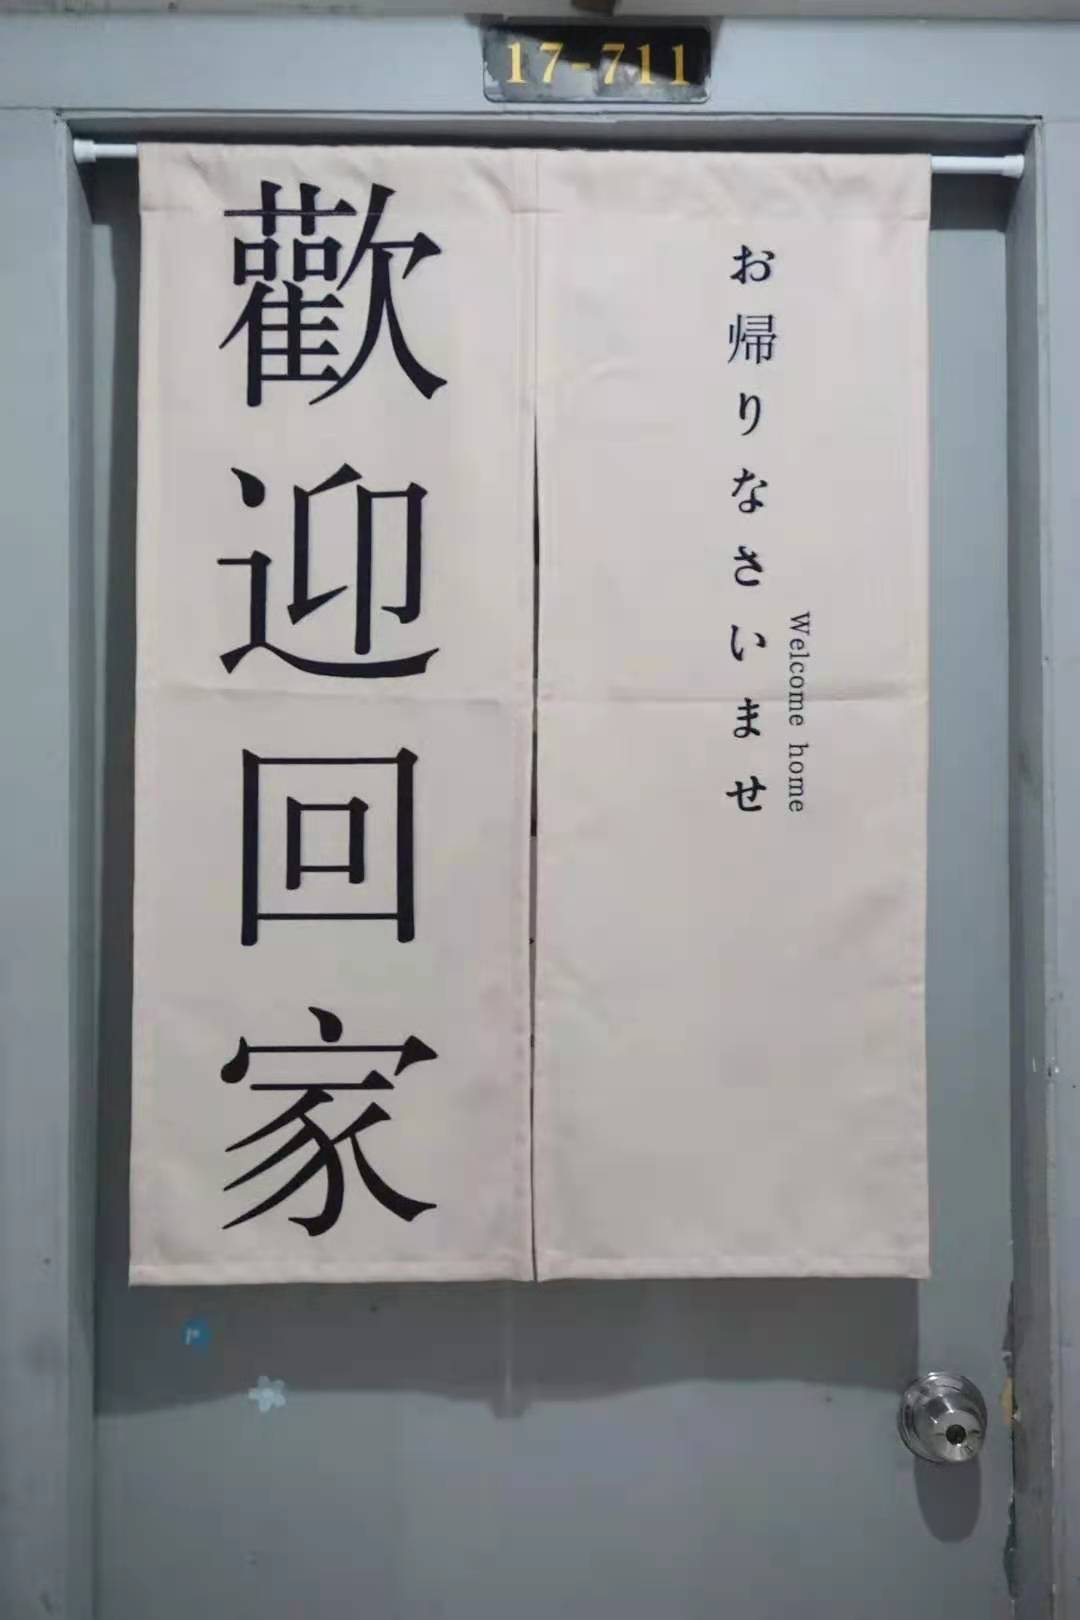 17-711
歡迎回家
お帰りなさいませ
Welcome home